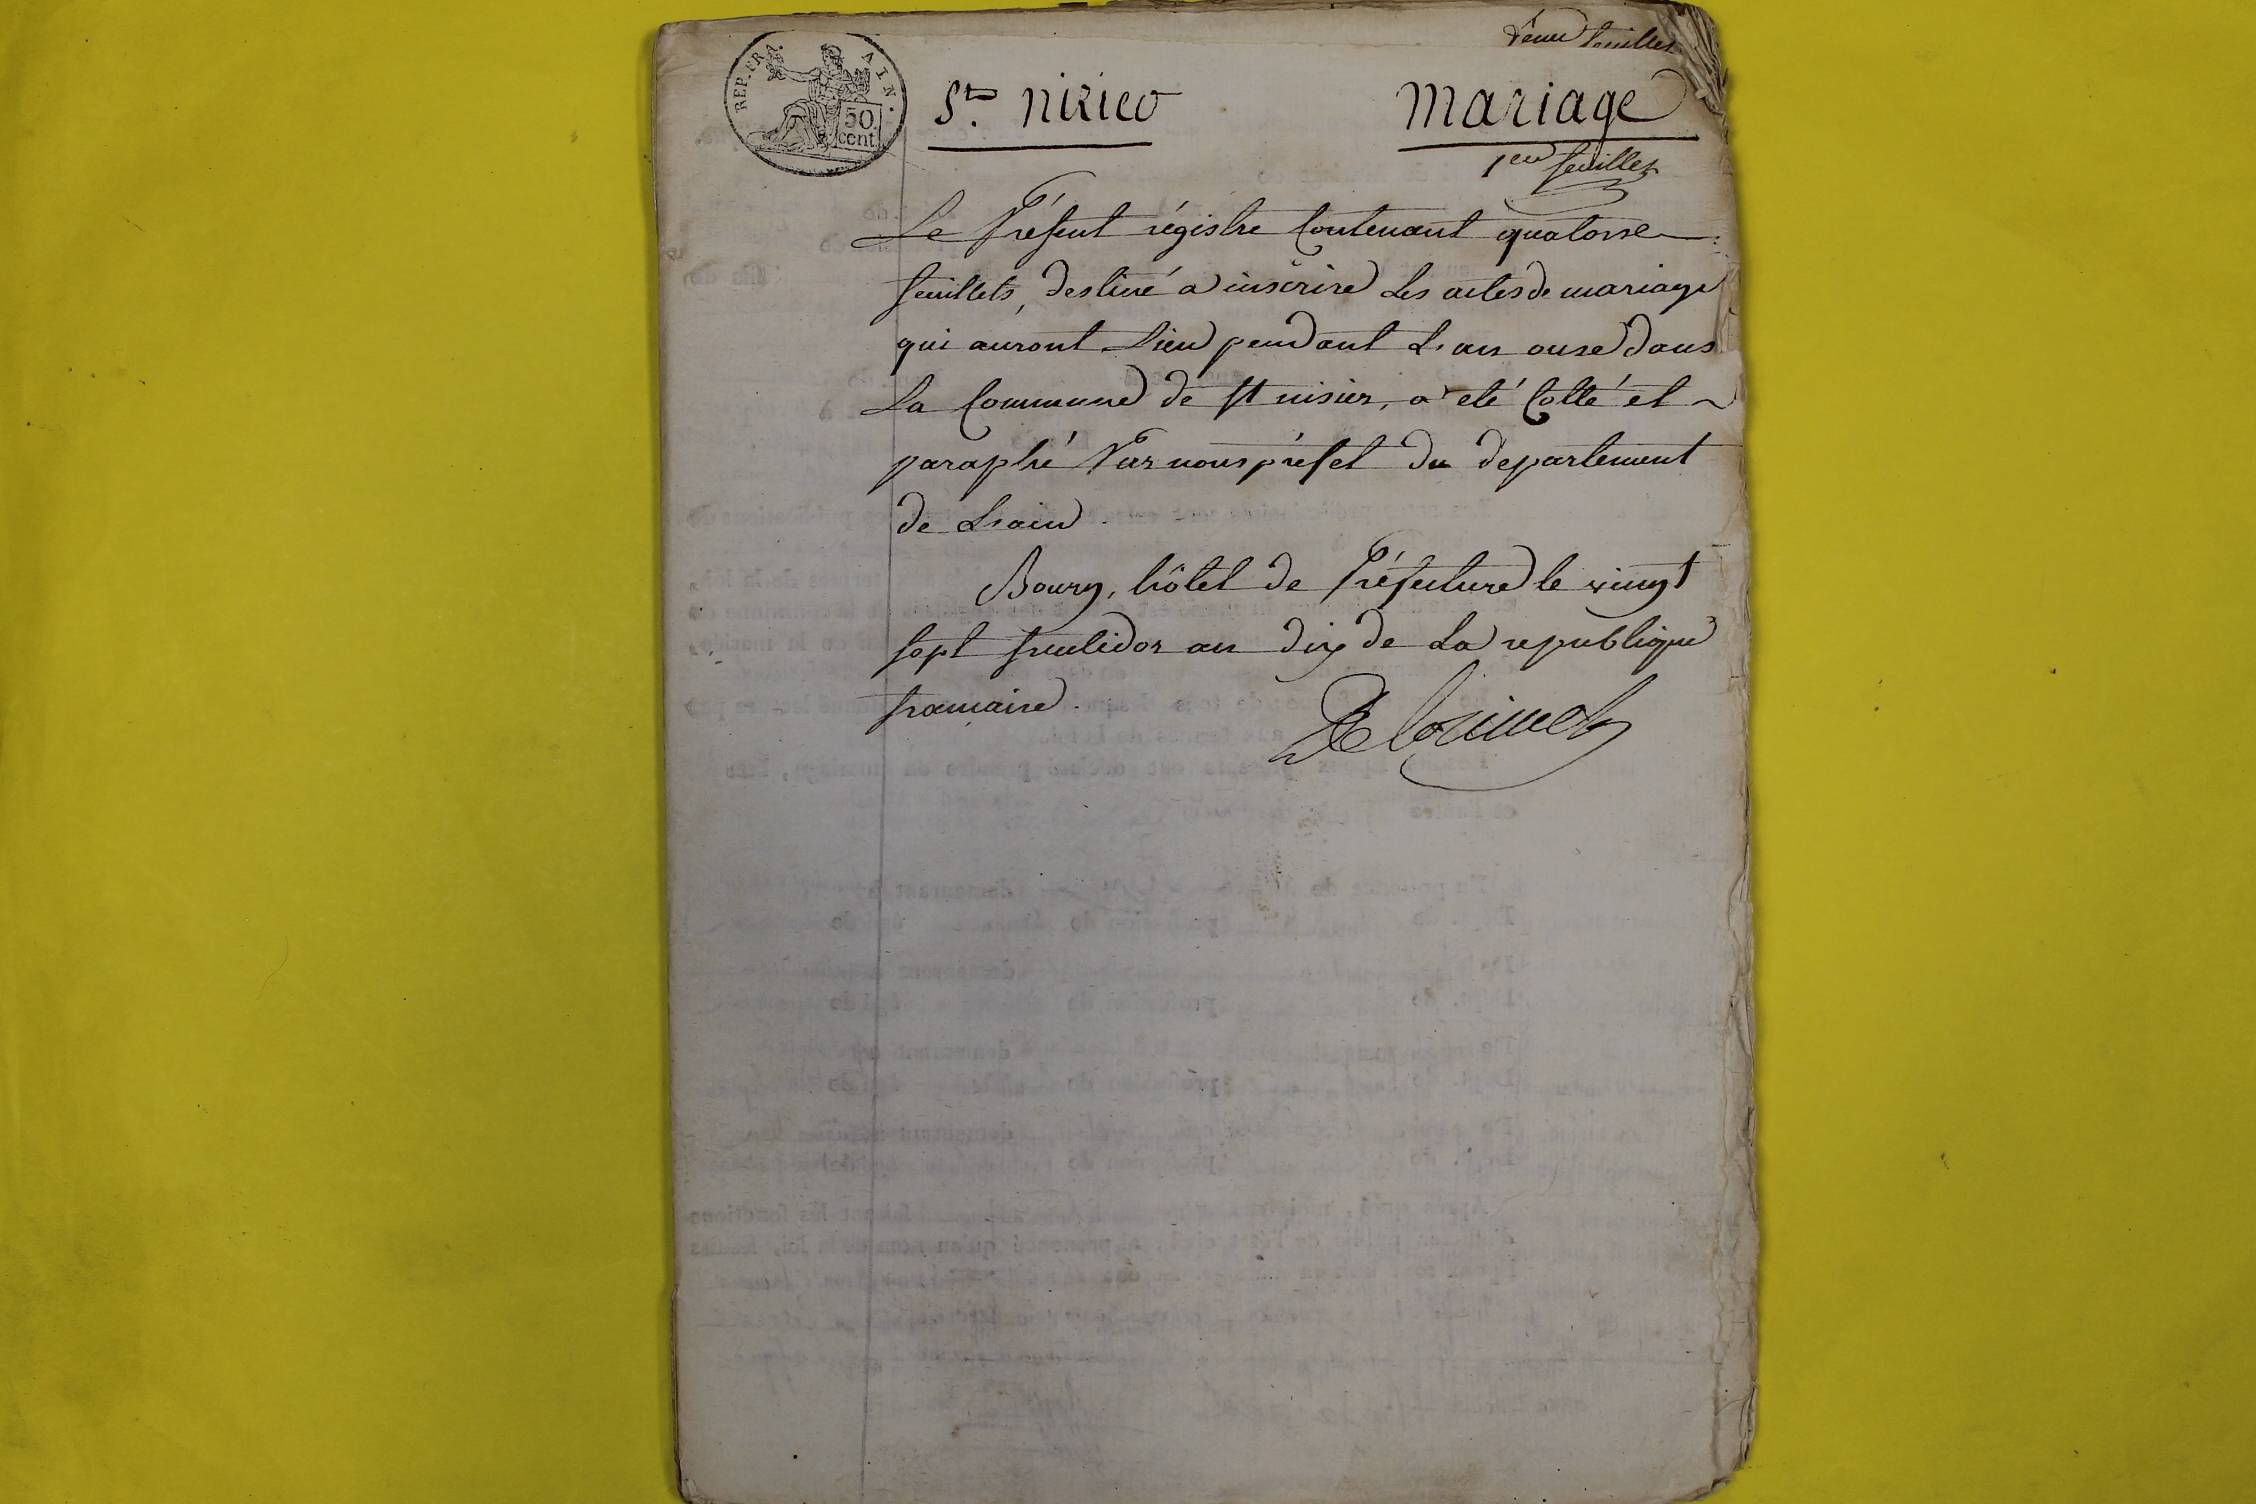 feuillet
REP. FRA. AIN.
50
cent
St. nizier Mariage
1er feuillet
Le Présent régistre Contenant quatorse
feuillets, destiné a inscrire Les actes de mariage
qui auront Lieu pendant L'an onze dans
La Commune de St nisier, a été Cotté et
paraphé Par nous préfet du département
de L'ain.
Bourg, hôtel de Préfecture le vingt
sept fructidor an dix de La republique
francaise.